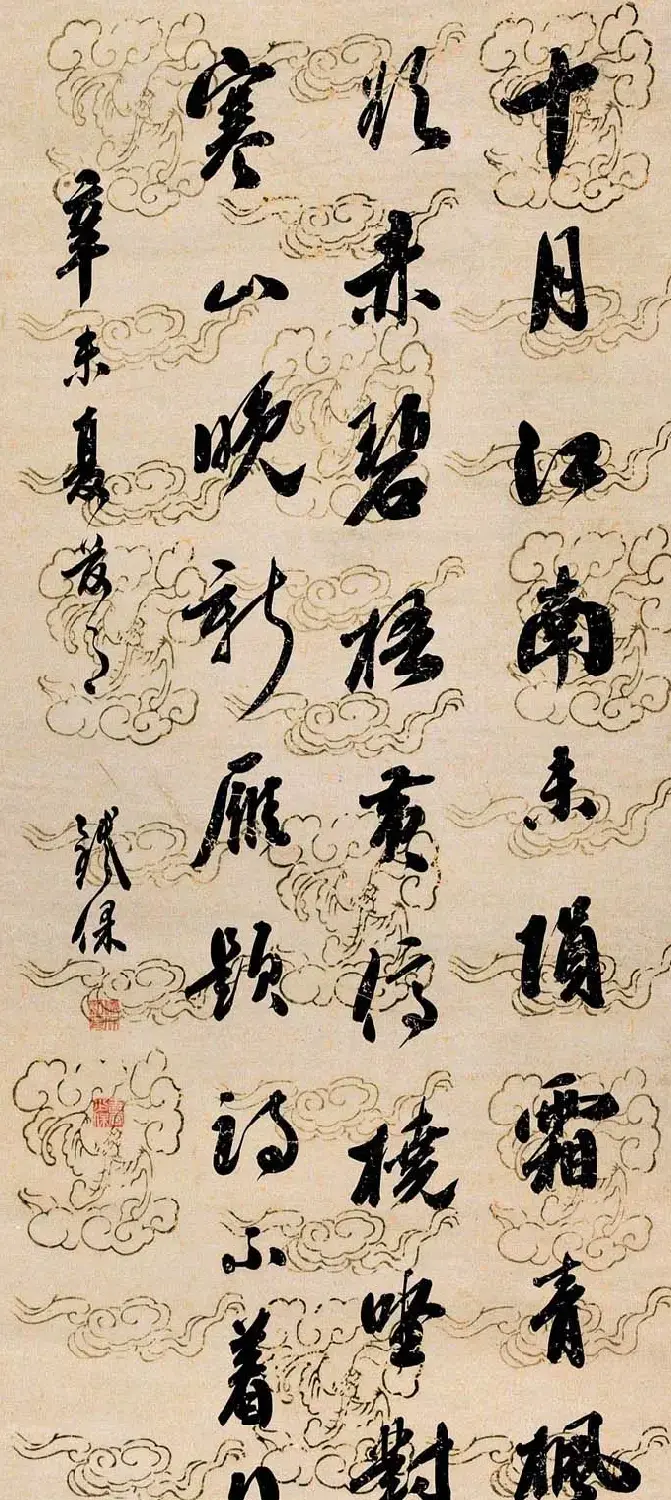 十月江南未隕霜青楓
欲赤碧梧黃停橈坐對
寒山晚新雁題詩不着
辛未夏
鐵保